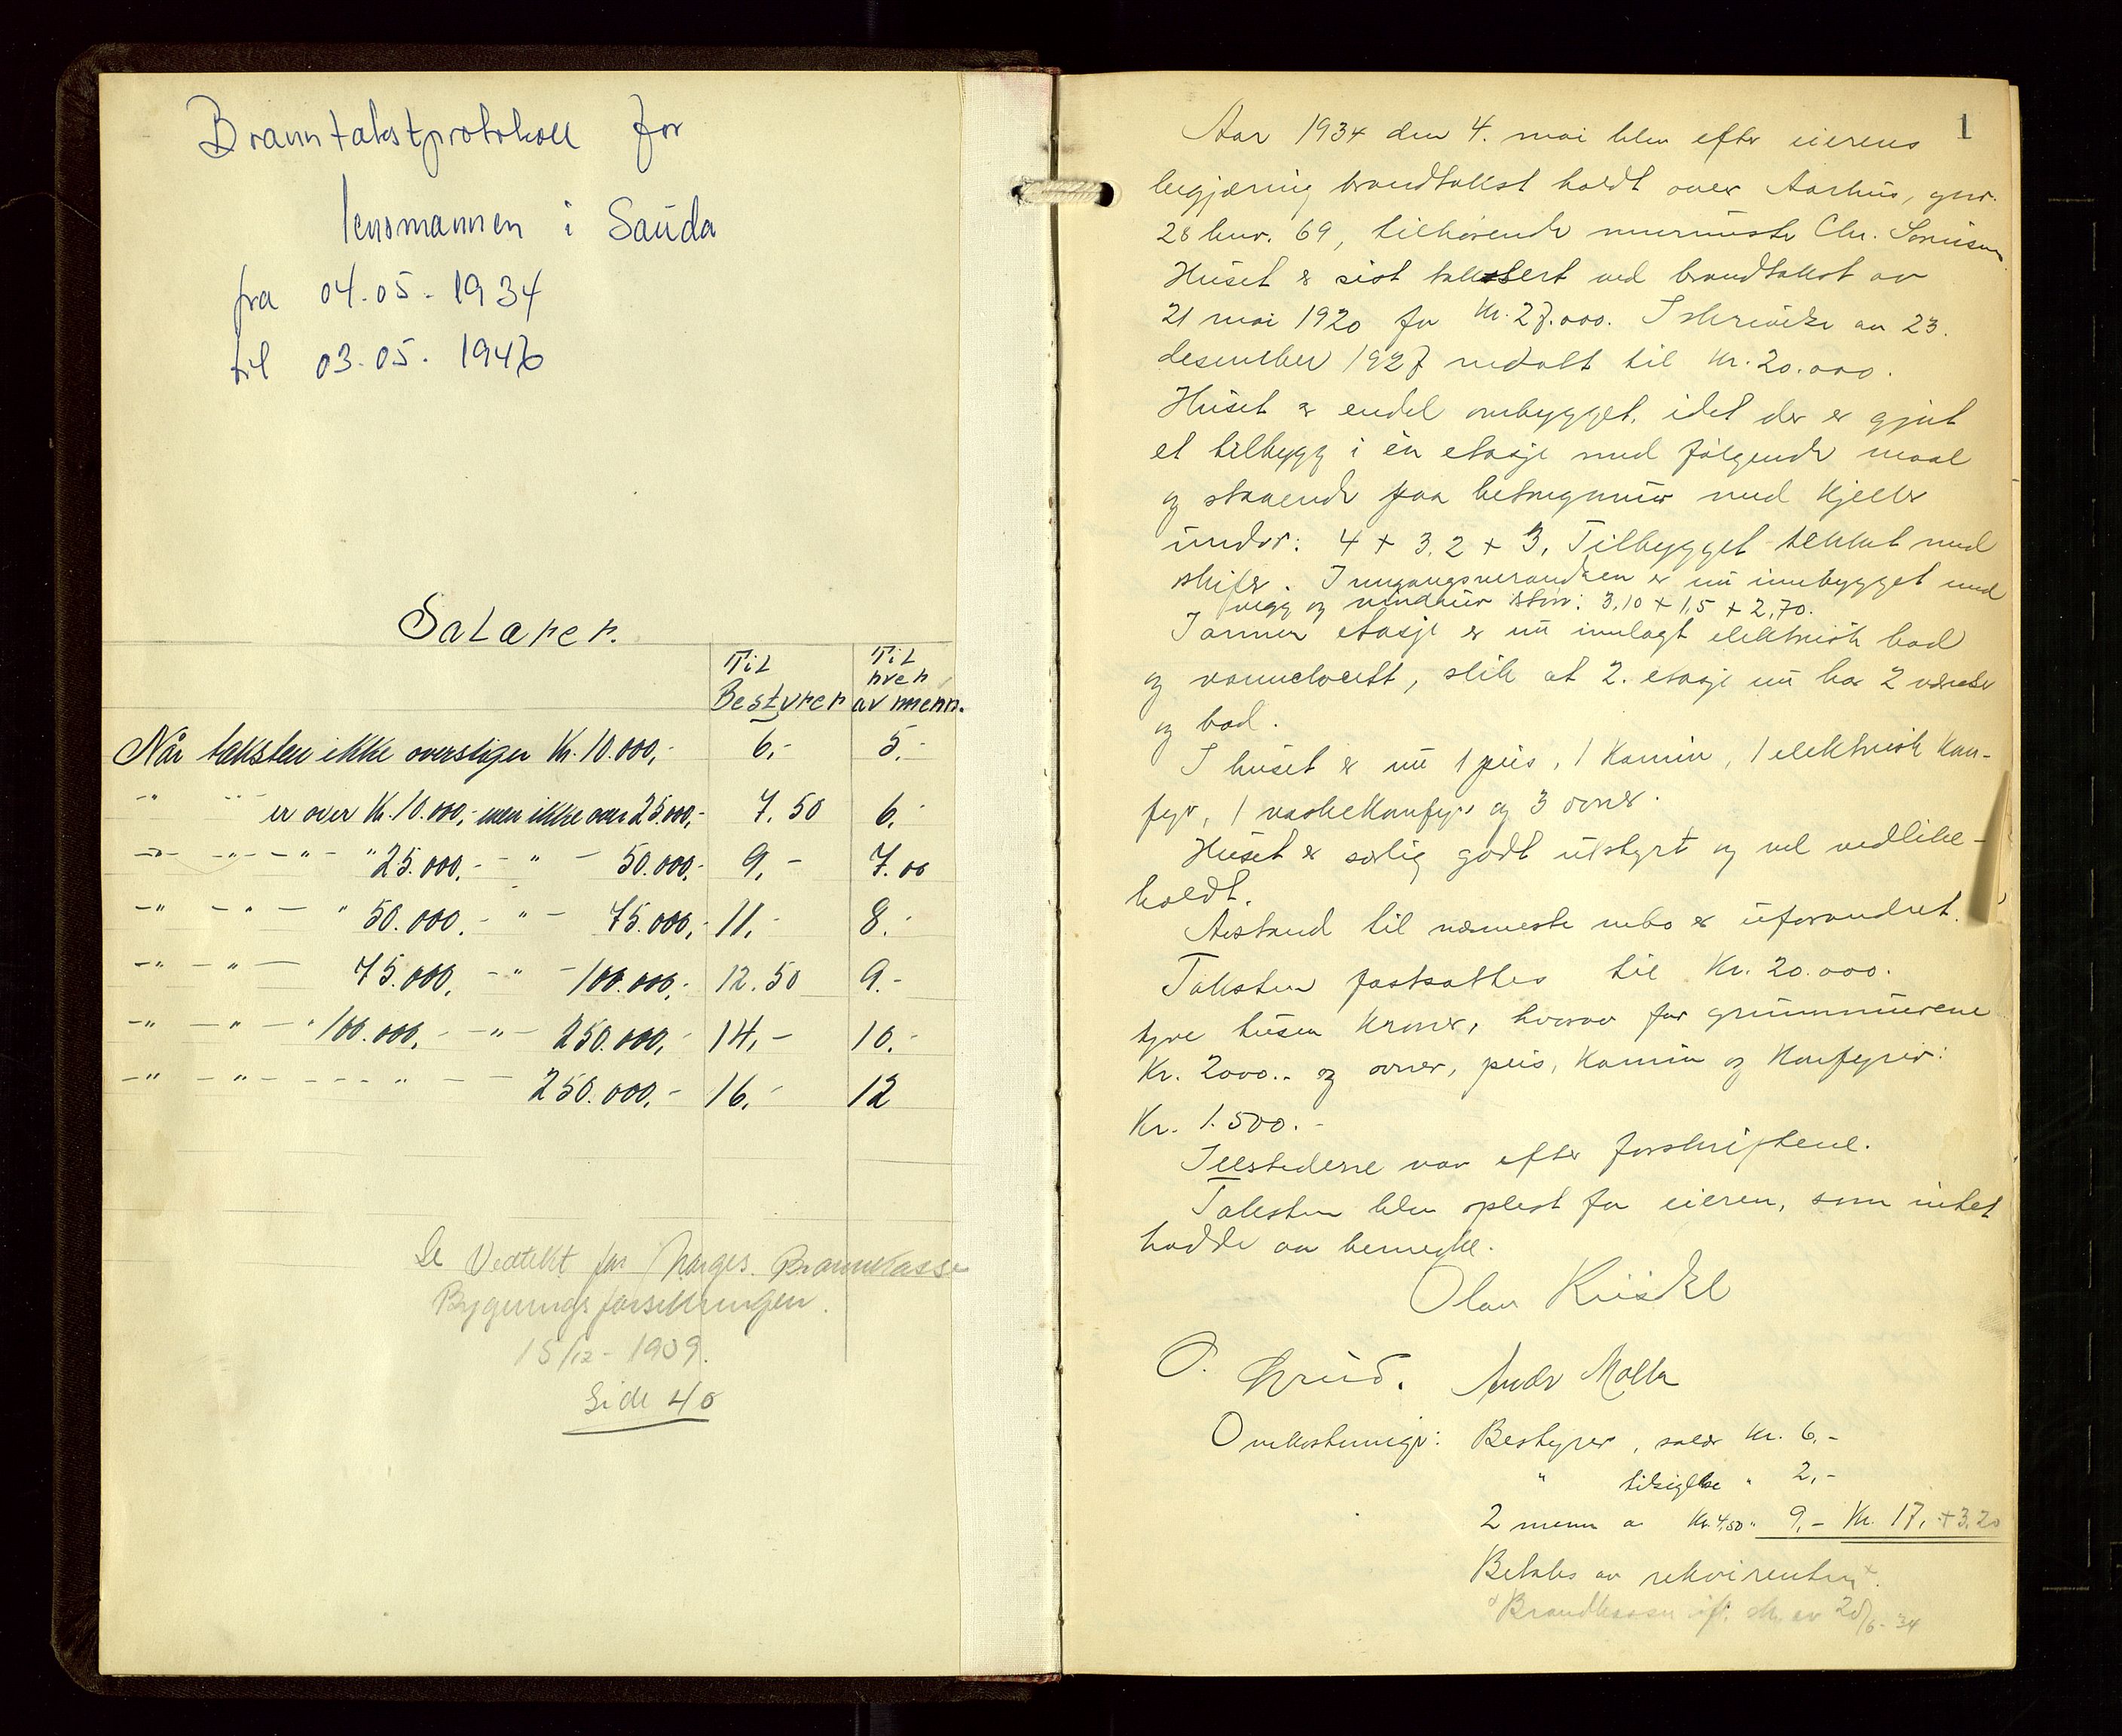 Branntakstprotokoll for
lensmannen i Sauda
fra 04.05.1934
til 03.05.1946
Salarer.
Til Bestyrer
Til hver av menn.
Når taksten ikke overstiger Kr. 10.000,- 6,- 5.-
-"- -"- er over Kr. 10.000,- men ikke over 25.000,- 7.50 6.-
-"- -"- -"- "25.000,- -"- 50.000,- 9,- 7.00
-"- -"- " 50.000,- -"- 75.000,- 11,- 8.-
-"- -"- 75.000,- -"- 100.000,- 12.50 9.-
-"- -"- " 100.000,- -"- 250.000,- 14,- 10.-
-"- -"- -"- 250.000,- 16,- 12
Se Vedtekt for Norges Brannkasse
Bygningsforsikringen.
15/12-1939.
Side 40
1
Aar 1934 den 4. mai blev efter eierens
begjæring brandtakst holdt over Aarhus, gnr.
28 bnr. 69, tilhørende murmester Chr.
Huset er sist takstert ved brandtakst av
21 mai 1920 for Kr. 27.000. I skrivelse av 23.
desember 1927 nedsatt til Kr. 20.000.
Huset er endel ombygget, idet der er gjort
et tilbygg i en etasje med følgende maal
og staaende paa betongmur med kjeller
under: 4 + 3,2 + 3. Tilbygget tekket med
skifer. Inngangsverandaen er nu innbygget med
vegg og vinduer størr: 3,10 + 1,5 + 2,70.
I annen etasje er nu innlagt elektrisk bad
og vannclosett, slik at 2. etasje nu har 2 værelser
og bad.
I huset er nu 1 peis, 1 kamin, 1 elektrisk kom-
fyr, 1 vaskekomfyr og 3 ovner.
Huset er særlig godt utstyrt og vel vedlike-
holdt.
Avstand til nærmeste nabo er uforandret.
Taksten fastsattes til Kr. 20.000.
tyve tusen kroner, hvorav for grunnmurene
Kr. 2000.- og ovner, peis, kamin og komfyrer:
Kr. 1.500.-
Ildstederne var efter forskriftene.
Taksten blev oplest for eieren, som intet
hadde aa bemerke.
Olav
O. Andr Molla
Omkostninger: Bestyrer, salær Kr. 6,-
" tilsigelse " 2,-
2 menn a Kr. 4,50 " 9,- Kr. 17, + 3,20
Betales av rekvirenten x.
x Brandkassen ifl. skr. av 20/6-34